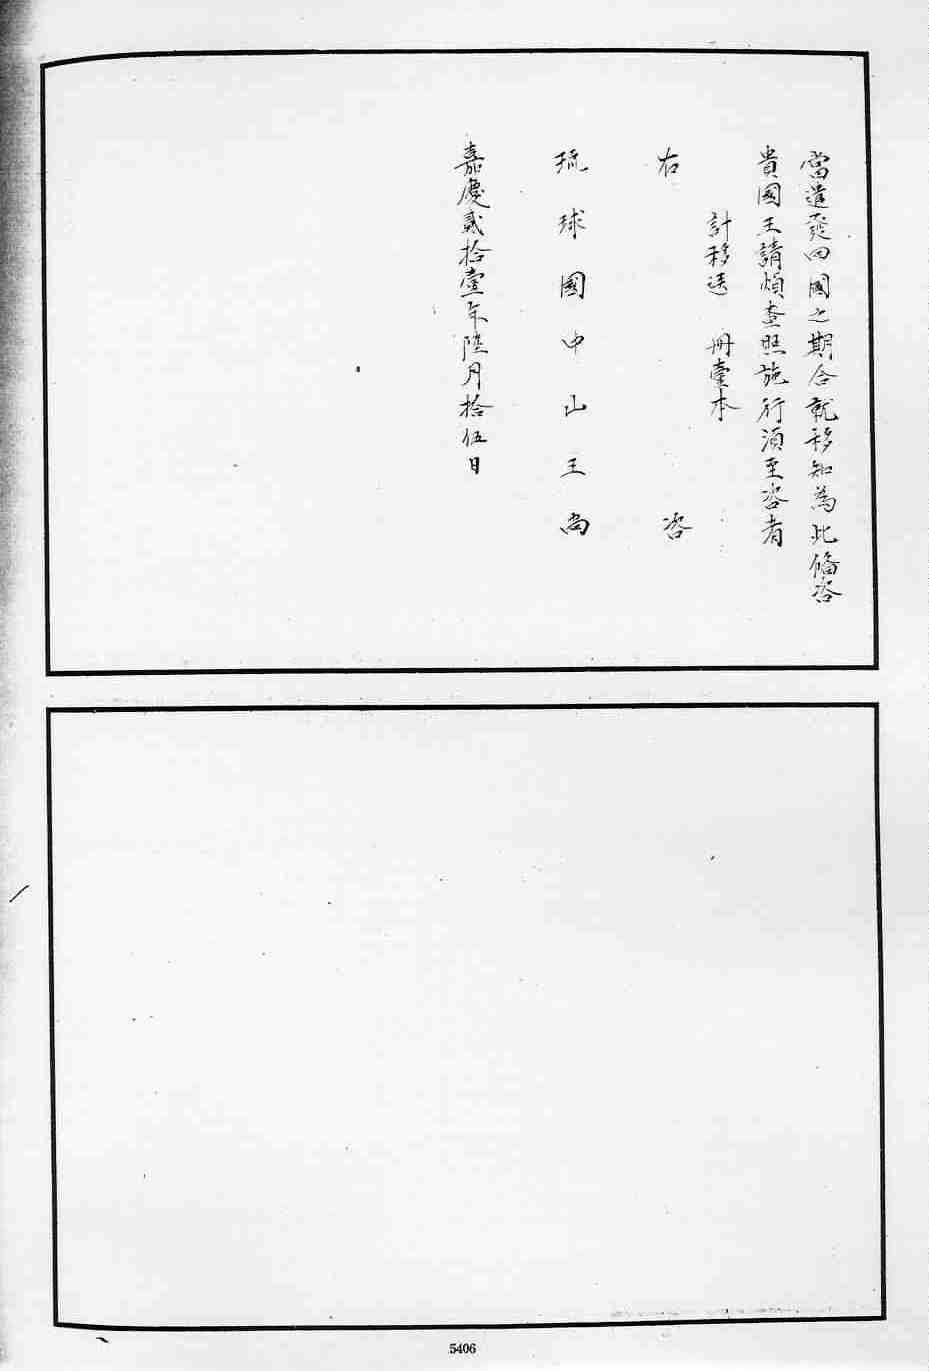 當遣發回國之期合就移知為此備咨
貴國王請煩查照施行須至咨者
計移送 冊壹本
右 咨
琉球國中山王尚
嘉慶貳拾壹年陸月拾伍日
5406